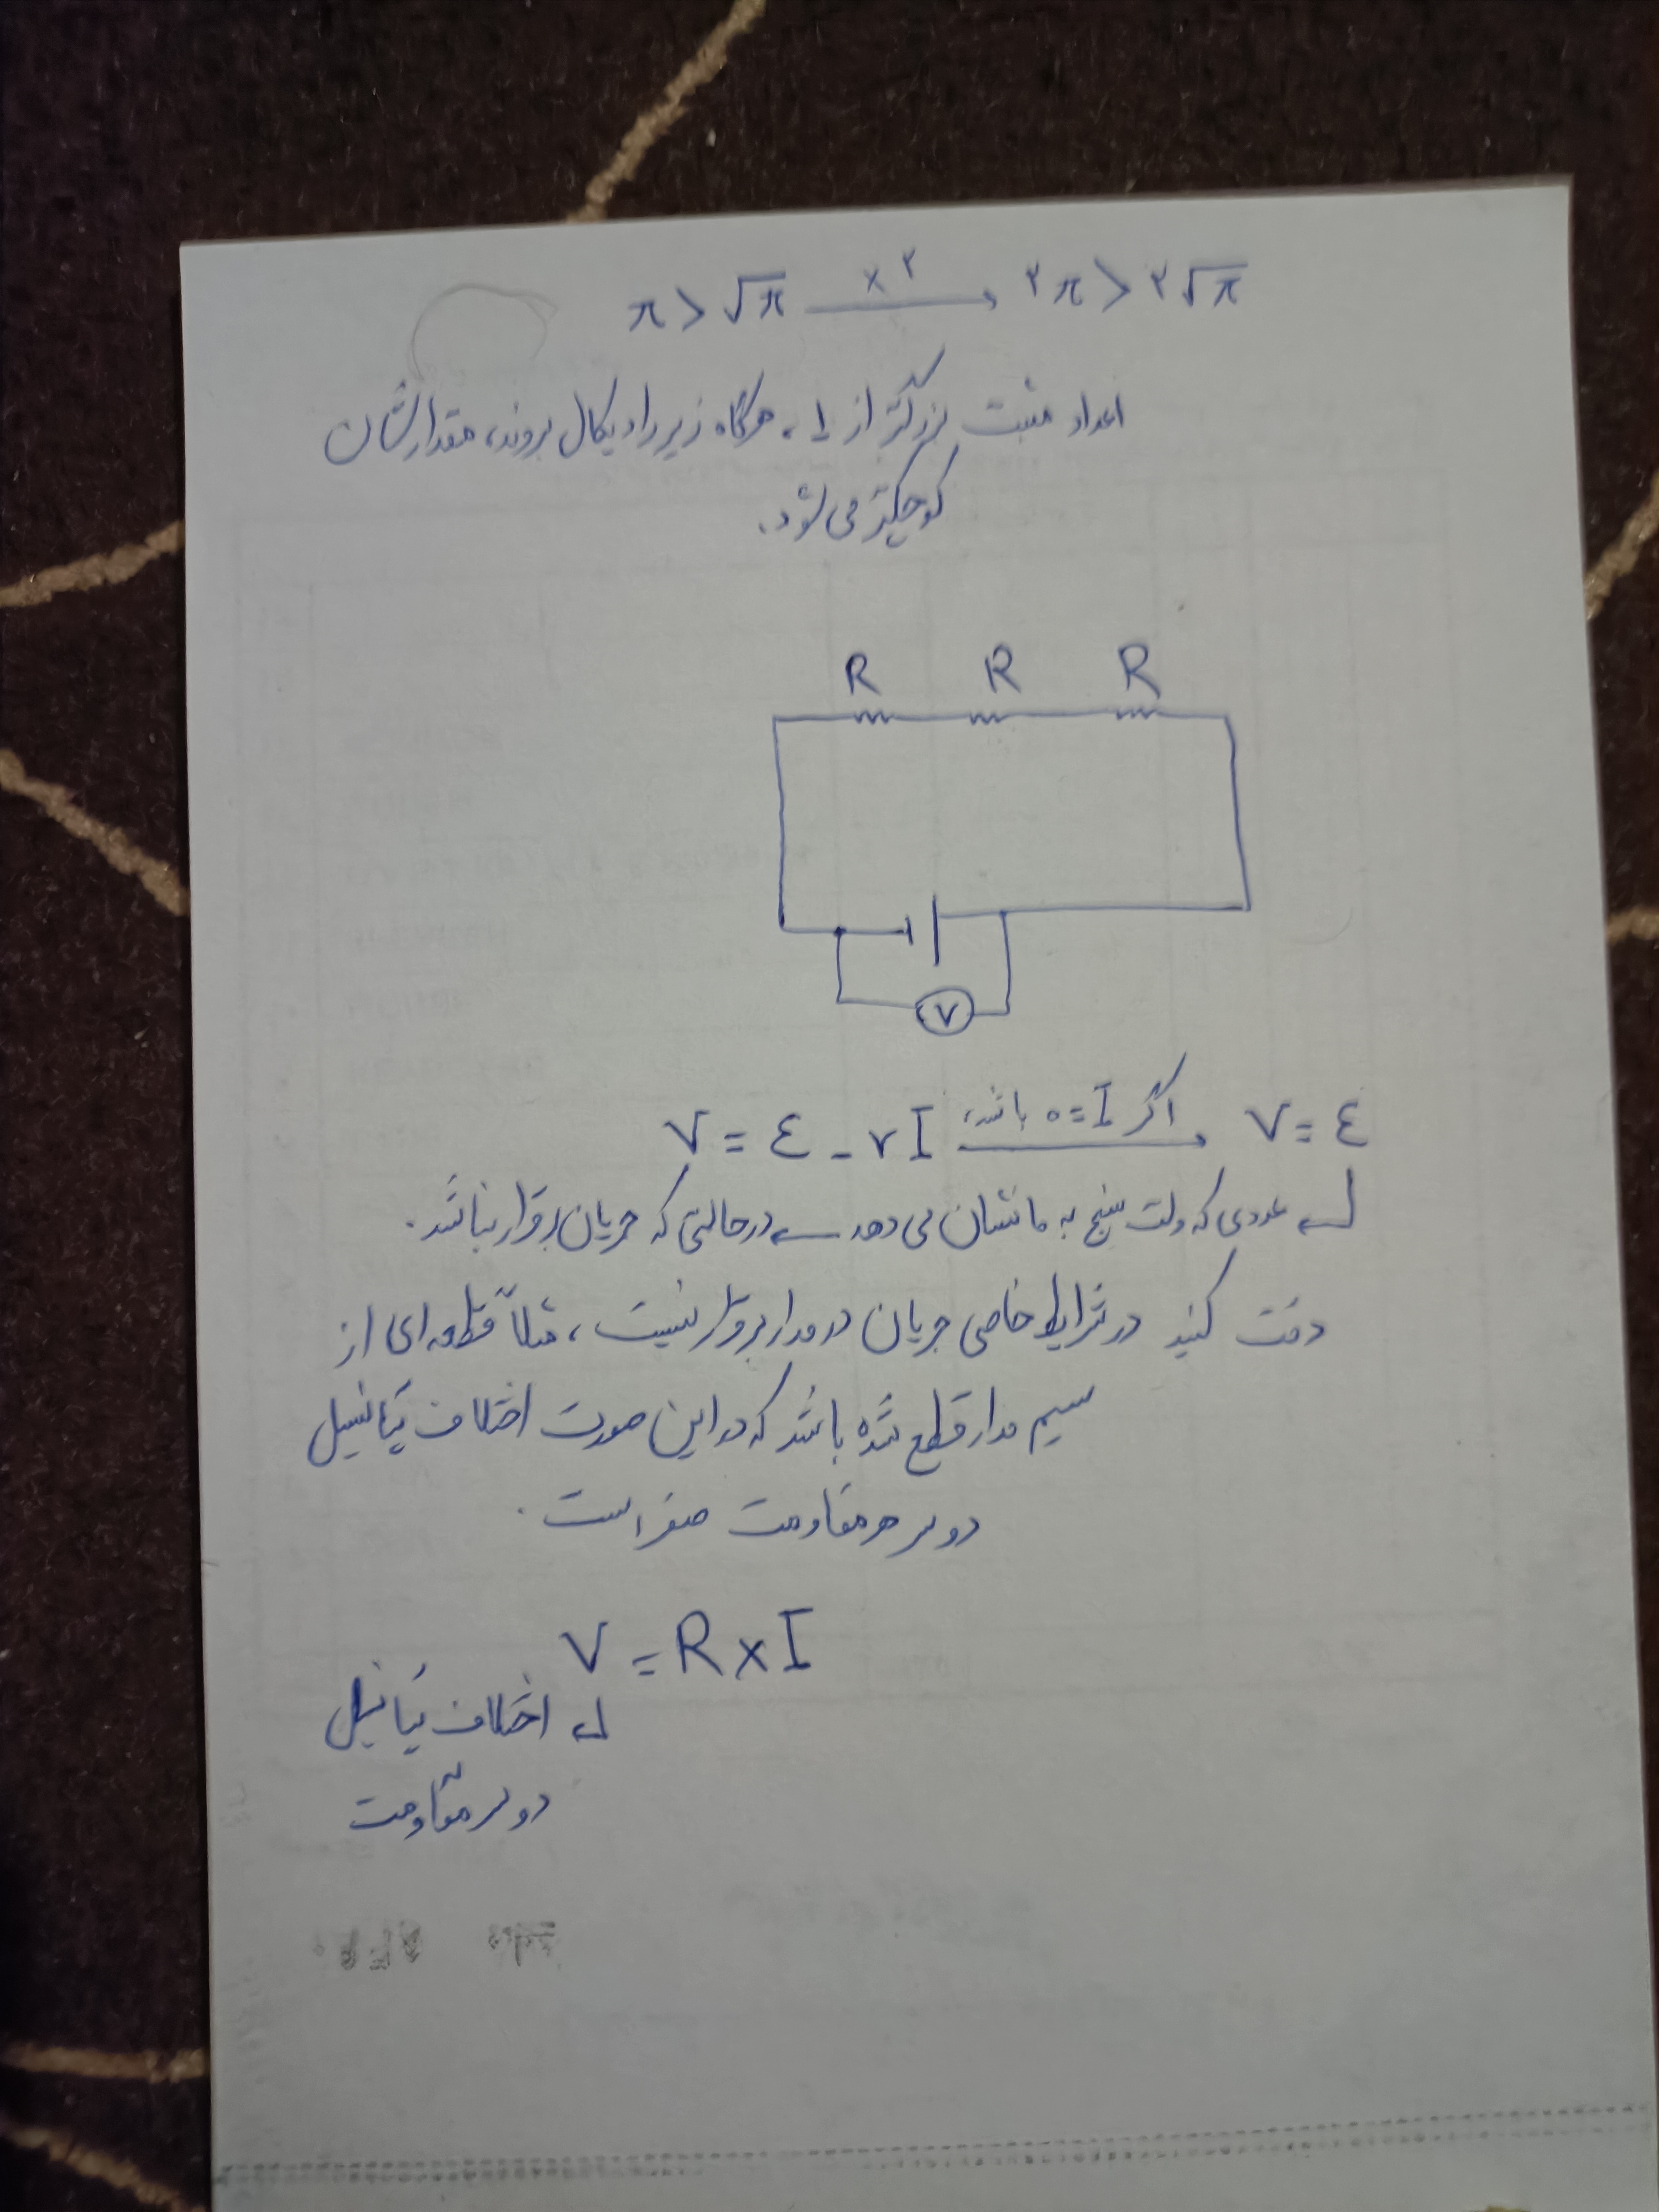 π > √π —×۲→ ۲π > ۲√π
اعداد مثبت بزرگتر از ۱، هرگاه زیر رادیکال بروند، مقدارشان
کوچکتر می‌شود.
R R R
V
V = ε - rI —اگر I = ۰ باشد،→ V = ε
عددی که ولت سنج به ما نشان می دهد ← در حالتی که جریان برقرار نباشد.
دقت کنید در شرایط خاصی جریان در مدار برقرار نیست، مثلاً قطعه ای از
سیم مدار قطع شده باشد که در این صورت اختلاف پتانسیل
دو سر هر مقاومت صفر است.
V = R × I
اختلاف پتانسیل
دو سر مقاومت